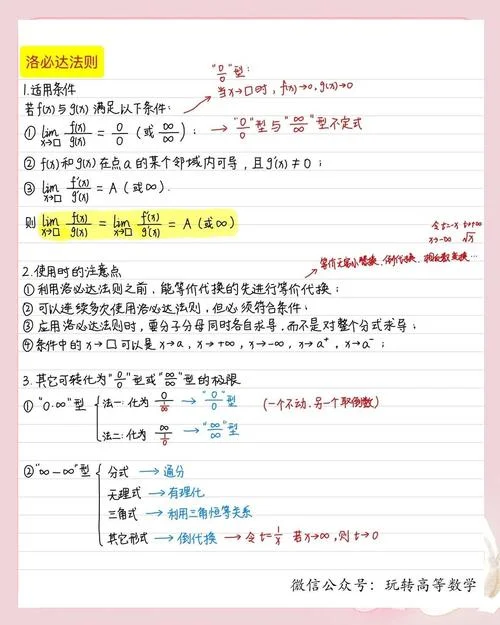 洛必达法则
"0/0"型:
当x→□时, f(x)→0, g(x)→0
1.适用条件
若f(x)与g(x)满足以下条件:
① lim x→□ f(x)/g(x) = 0/0 (或 ∞/∞); → "0/0"型与"∞/∞"型不定式
② f(x)和g(x)在点a的某个邻域内可导, 且g'(x)≠0;
③ lim x→□ f'(x)/g'(x) = A (或∞).
则 lim x→□ f(x)/g(x) = lim x→□ f'(x)/g'(x) = A (或∞)
令t=-x t→+∞
x→-∞ √x
等价无穷小替换、倒代换、相反数变换…
2.使用时的注意点
① 利用洛必达法则之前, 能等价代换的先进行等价代换;
② 可以连续多次使用洛必达法则, 但必须符合条件;
③ 应用洛必达法则时, 要分子分母同时各自求导, 而不是对整个分式求导;
④ 条件中的x→□可以是x→a, x→+∞, x→-∞, x→a⁺, x→a⁻;
3.其它可转化为"0/0"型或"∞/∞"型的极限
① "0·∞"型 { 法一: 化为 0/(1/∞) → "0/0"型 (一个不动, 另一个取倒数)
法二: 化为 ∞/(1/0) → "∞/∞"型
② "∞-∞"型 { 分式 → 通分
无理式 → 有理化
三角式 → 利用三角恒等关系
其它形式 → 倒代换 → 令t=1/x 若x→∞, 则t→0
微信公众号: 玩转高等数学